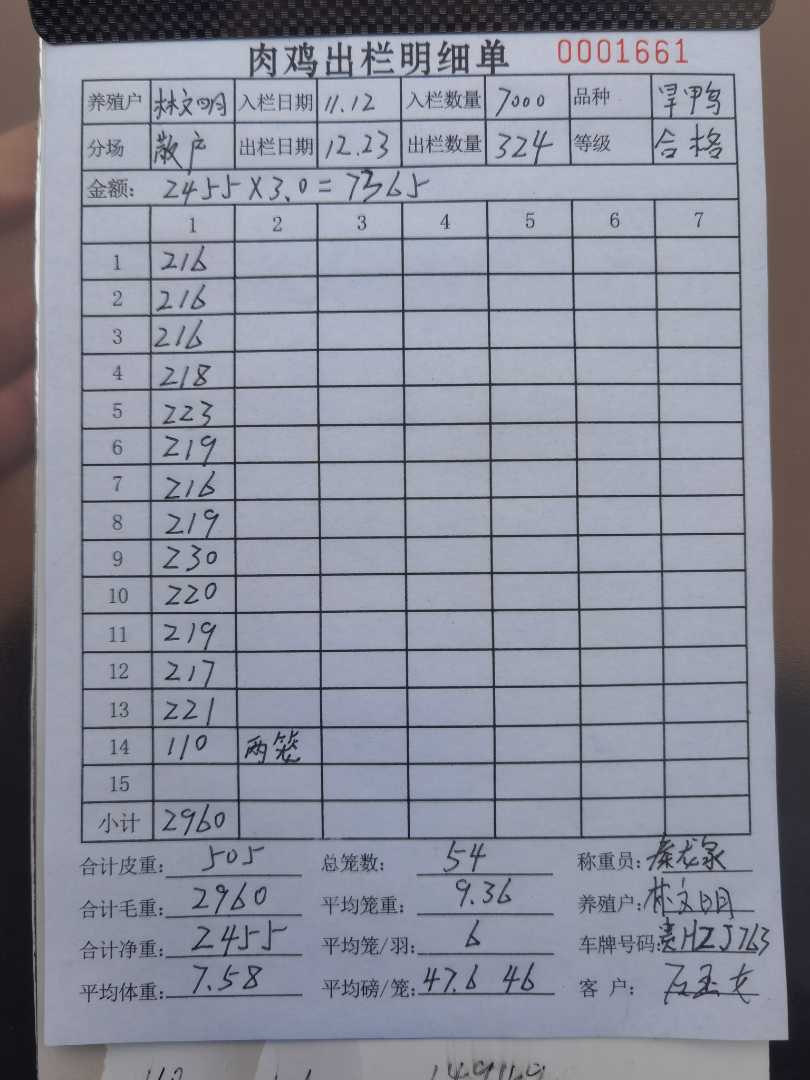 肉鸡出栏明细单 0001661
养殖户 林文明 入栏日期 11.12 入栏数量 7000 品种 旱鸭
分场 散户 出栏日期 12.23 出栏数量 324 等级 合格
金额: 2455×3.0=7365
1 2 3 4 5 6 7
1 216
2 216
3 216
4 218
5 223
6 219
7 216
8 219
9 230
10 220
11 219
12 217
13 221
14 110 两笼
15
小计 2960
合计皮重: 505 总笼数: 54 称重员: 秦龙泉
合计毛重: 2960 平均笼重: 9.36 养殖户: 林文明
合计净重: 2455 平均笼/羽: 6 车牌号码: 贵HZJ763
平均体重: 7.58 平均磅/笼: 47.6 46 客 户: